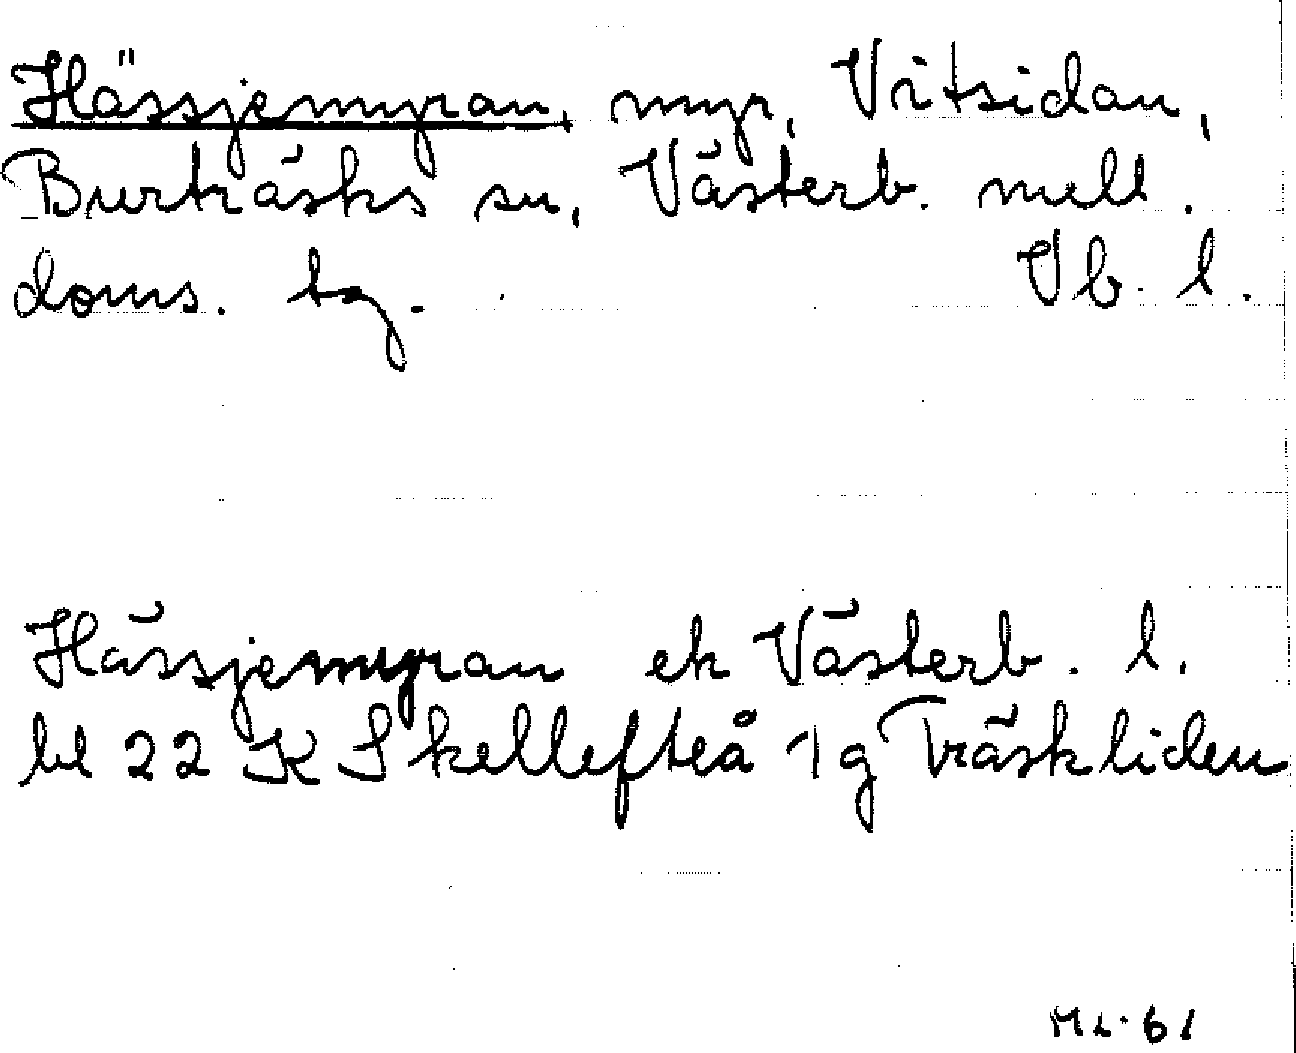 Hässjemyran, myr, Vitsidan,
Burträsks sn, Västerb. mell.
doms. tg. Vb. l.
Hässjemyran ek Västerb. l.
bl 22 K Skellefteå 1g Träskliden
ML. 61